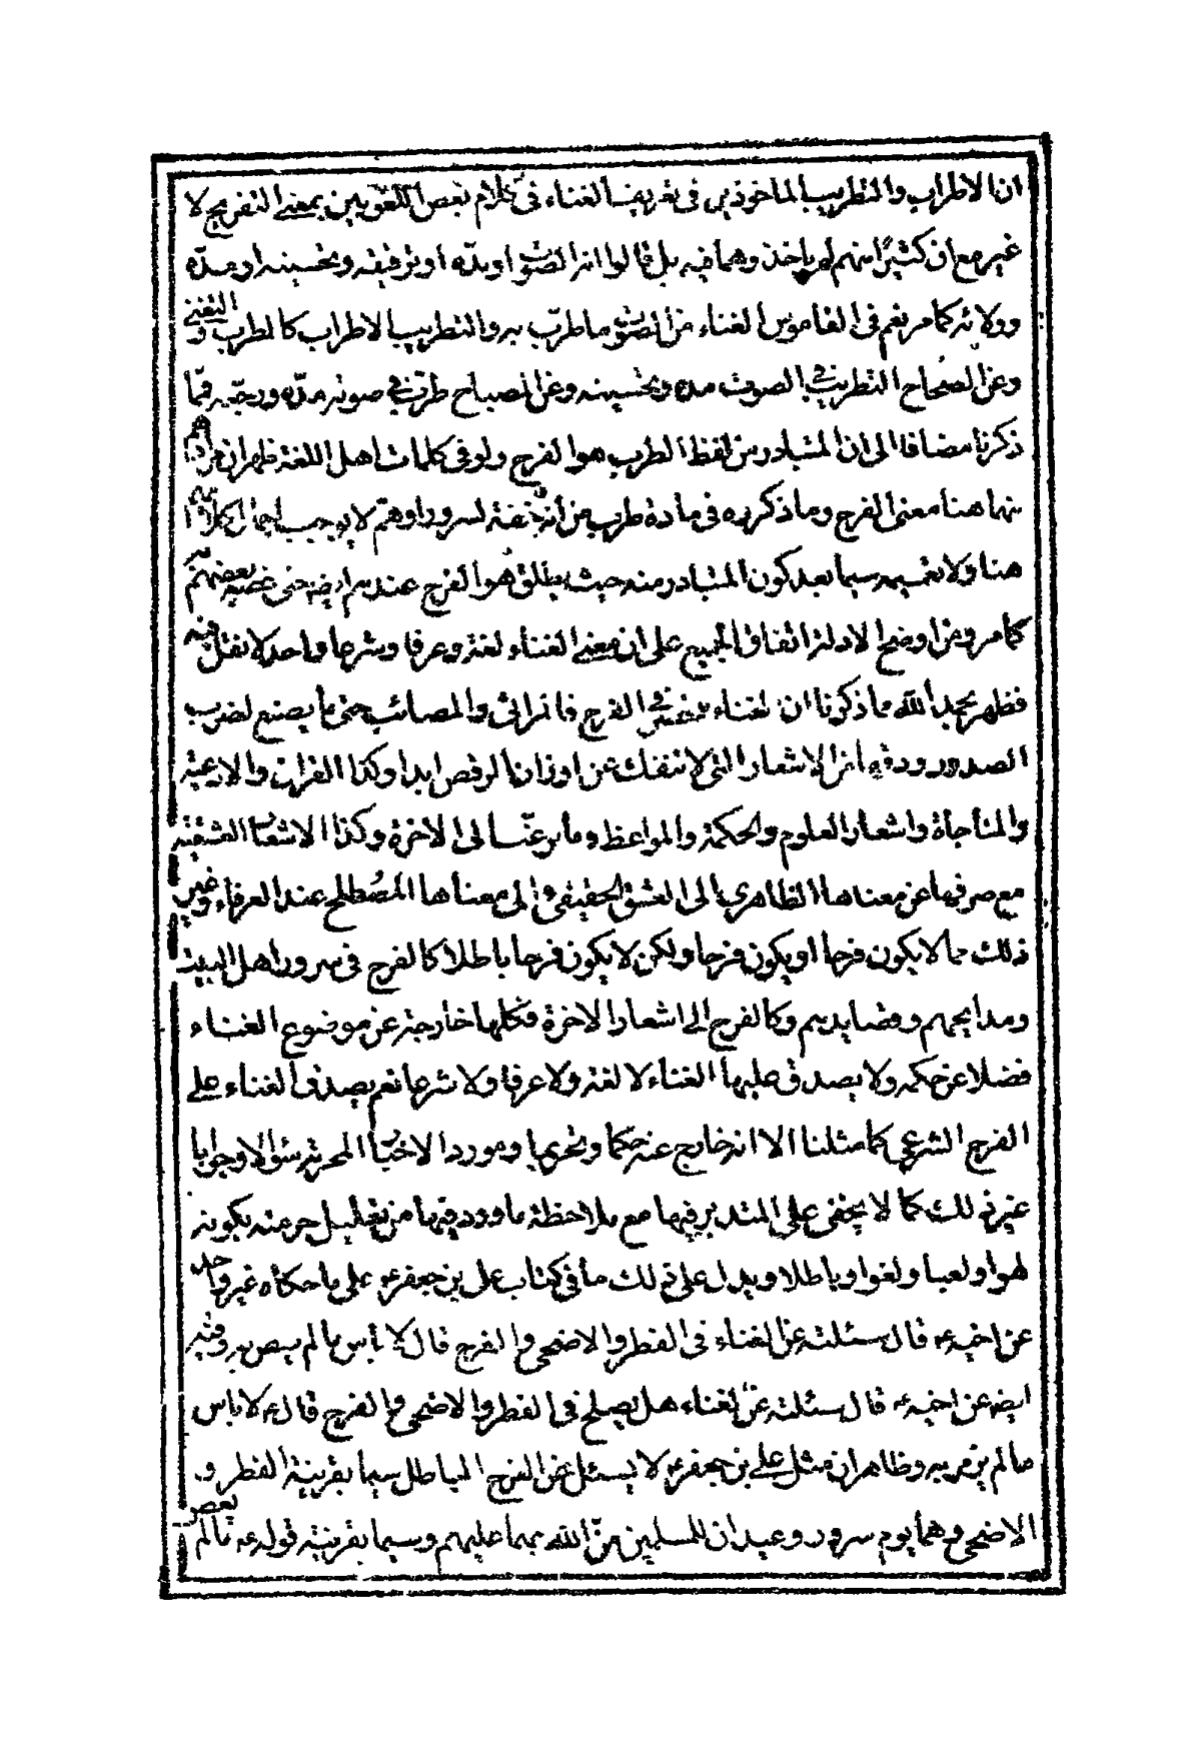 ان الاطراب والتطريب الماخوذين فى تعريف الغناء فى كلام بعض اللغويين بمعنى التفريح لا
غير مع ان كثيرا منهم لم ياخذوهما فيه بل قالوا انه الصوت او مدّه او ترقيقه وتحسينه او مدّه
وولائه كما مر نعم فى القاموس الغناء من الصوت ما طرّب به والتطريب الاطراب كالطرب والتغنى
وعن الصحاح التطريب فى الصوت مده وتحسينه وعن المصباح طرّب فى صوته مدّه ورجّعه فمّا
ذكرنا مضافا الى ان المتبادر من لفظ الطرب هو الفرح ولو فى كلمات اهل اللغة ظهر ان مرادهم
منهما هنا معنى الفرح وما ذكروه فى مادة طرب من انه خفة لسرور او همّ لا يوجب اجمال كلامهم
هنا ولا تعميمه سيما بعد كون المتبادر منه حيث يطلق هو الفرح عندهم ايضا حتى خصّه بعضهم به
كما مر ومن اوضح الادلة اتفاق الجميع على ان معنى الغناء لغة وعرفا وشرعا واحد لا نقل فيه
فظهر بحمد الله مما ذكرنا ان الغناء منحصر فى الفرح فالمراثى والمصائب حتى ما يصنع لضرب
الصدور ودقه من الاشعار التى لا تنفك عن اوزان الرقص ابدا وكذا القران والادعية
والمناجاة واشعار العلوم والحكمة والمواعظ وما يرغّب الى الاخرة وكذا الاشعار العشقية
مع صرفها عن معناها الظاهرى الى العشق الحقيقى والى معناها المصطلح عند العرفاء وغير
ذلك مما لا يكون فرحا او يكون فرحا ولكن لا يكون فرحا باطلا كالفرح فى سرور اهل البيت
ومدايحهم وقصايدهم وكالفرح الى اشعار الاخرة فكلها خارجة عن موضوع الغناء
فضلا عن حكمه ولا يصدق عليها الغناء لا لغة ولا عرفا ولا شرعا نعم يصدق الغناء على
الفرح الشرعى كما مثلنا الا انه خارج عنه حكما وتحريما ومورد الاخبار المحرمة سئوالا وجوابا
غير ذلك كما لا يخفى على المتدبر فيها مع ملاحظة ما ورد فيها من تعليل حرمته بكونه
لهوا ولعبا ولغوا وباطلا ويدل على ذلك ما فى كتاب على بن جعفر ع على ما حكاه غير واحد
عن اخيه ع قال سئلته عن الغناء فى الفطر والاضحى والفرح قال لا باس ما لم يعص به وفيه
ايضا عن اخيه ع قال سئلته عن الغناء هل يصلح فى الفطر والاضحى والفرح قال ع لا باس
ما لم يزمر به وظاهر ان مثل على بن جعفر ع لا يسئل عن الفرح الباطل سيما بقرينة الفطر و
الاضحى وهما يوم سرور وعيدان للمسلمين منّ الله بهما عليهم وسيما بقرينة قوله ع ما لم يعص